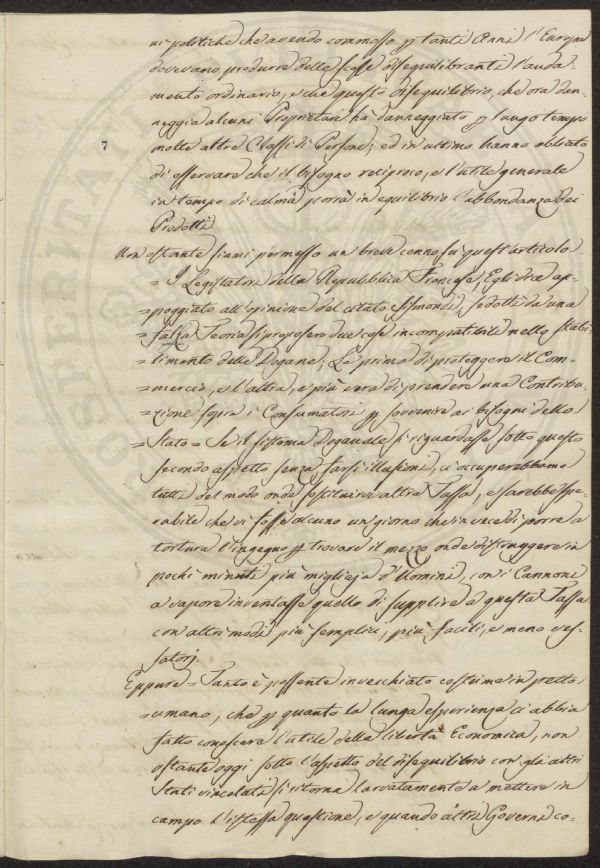 ni politiche che avendo commosso p tanti Anni l'Europa
dovevano produrre delle scosse disequilibranti l'anda-
mento ordinario, e che questo disequilibrio, che ora dan-
neggia alcuni Proprietari hà danneggiato p lungo tempo
7
molte altre Classi di Persone; ed in ultimo hanno obliato
di osservare che il bisogno reciproco, e l'utile generale
in tempo di calma porrà in equilibrio l'abbondanza dei
Prodotti.
Non ostante siami permesso un breve cenno sù quest'articolo
= I Legislatori della Repubblica Francese, Egli dice ap-
= poggiato all'opinione del citato Sismondi, sedotti da una
= falsa Teoria si proposero due cose incompatibili nello stabi-
= limento delle Dogane, La prima di proteggere il Com-
= mercio, e l'altra, e più vera di prendere una Contribu-
= zione sopra i Consumatori p sovvenire ai bisogni dello
= Stato = Se il sistema Doganale si riguardasse sotto questo
secondo aspetto senza farsi illusioni, ci occuperebbamo
tutti del modo onde sostituirvi altra Tassa, e sarebbe spe-
rabile che vi fosse alcuno un giorno che in vece di porre a
tortura l'ingegno p trovare il mezzo onde distruggere in
pochi minuti più migliaja d'Uomini, con i Cannoni
a vapore inventasse quello di supplire a questa Tassa
con altri modi più semplici, più facili, e meno ves-
satorj.
Eppure = Tanto è possente invecchiato costume in petto
= umano, che p quanto la lunga esperienza ci abbia
fatto conoscere l'utile della libertà Economica, non
ostante oggi sotto l'aspetto del disequilibrio con gli altri
Stati vincolati si ritorna larvatamente a mettere in
campo l'istessa questione, e quando altri Governi co-
PROSPERITATI